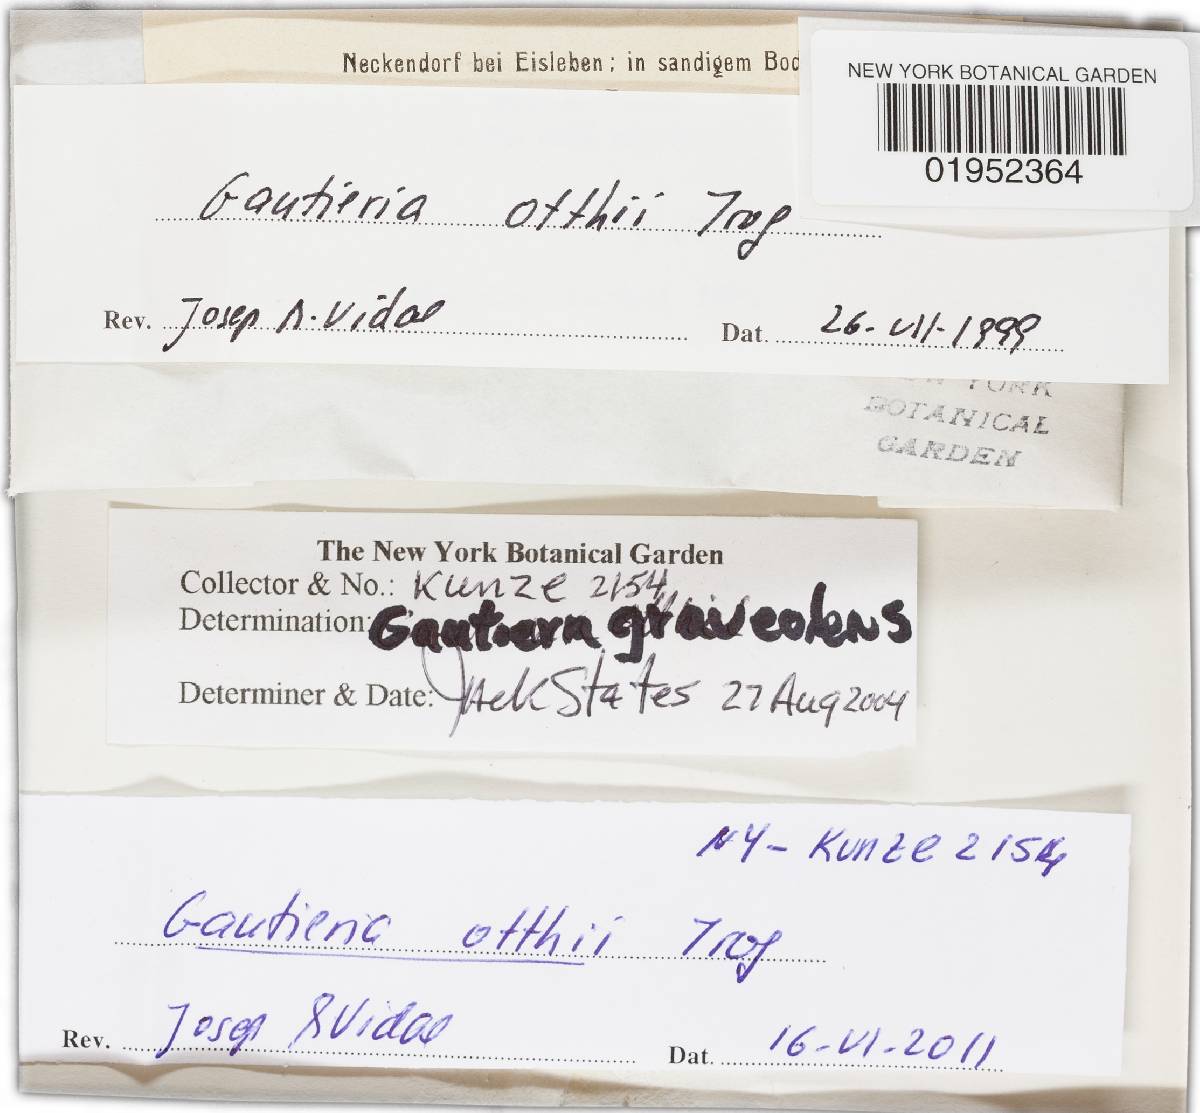 Neckendorf bei Eisleben; in sandigem Bod
NEW YORK BOTANICAL GARDEN
01952364
Gautieria otthii Trog
Rev. Josep A. Vidal
Dat. 26-VII-1999
YORK
BOTANICAL
GARDEN
The New York Botanical Garden
Collector & No.: Kunze 2154
Determination: Gautieria graveolens
Determiner & Date: Jack States 27 Aug 2004
NY - Kunze 2154
Gautieria otthii Trog
Rev. Josep Vidal
Dat. 16-VI-2011